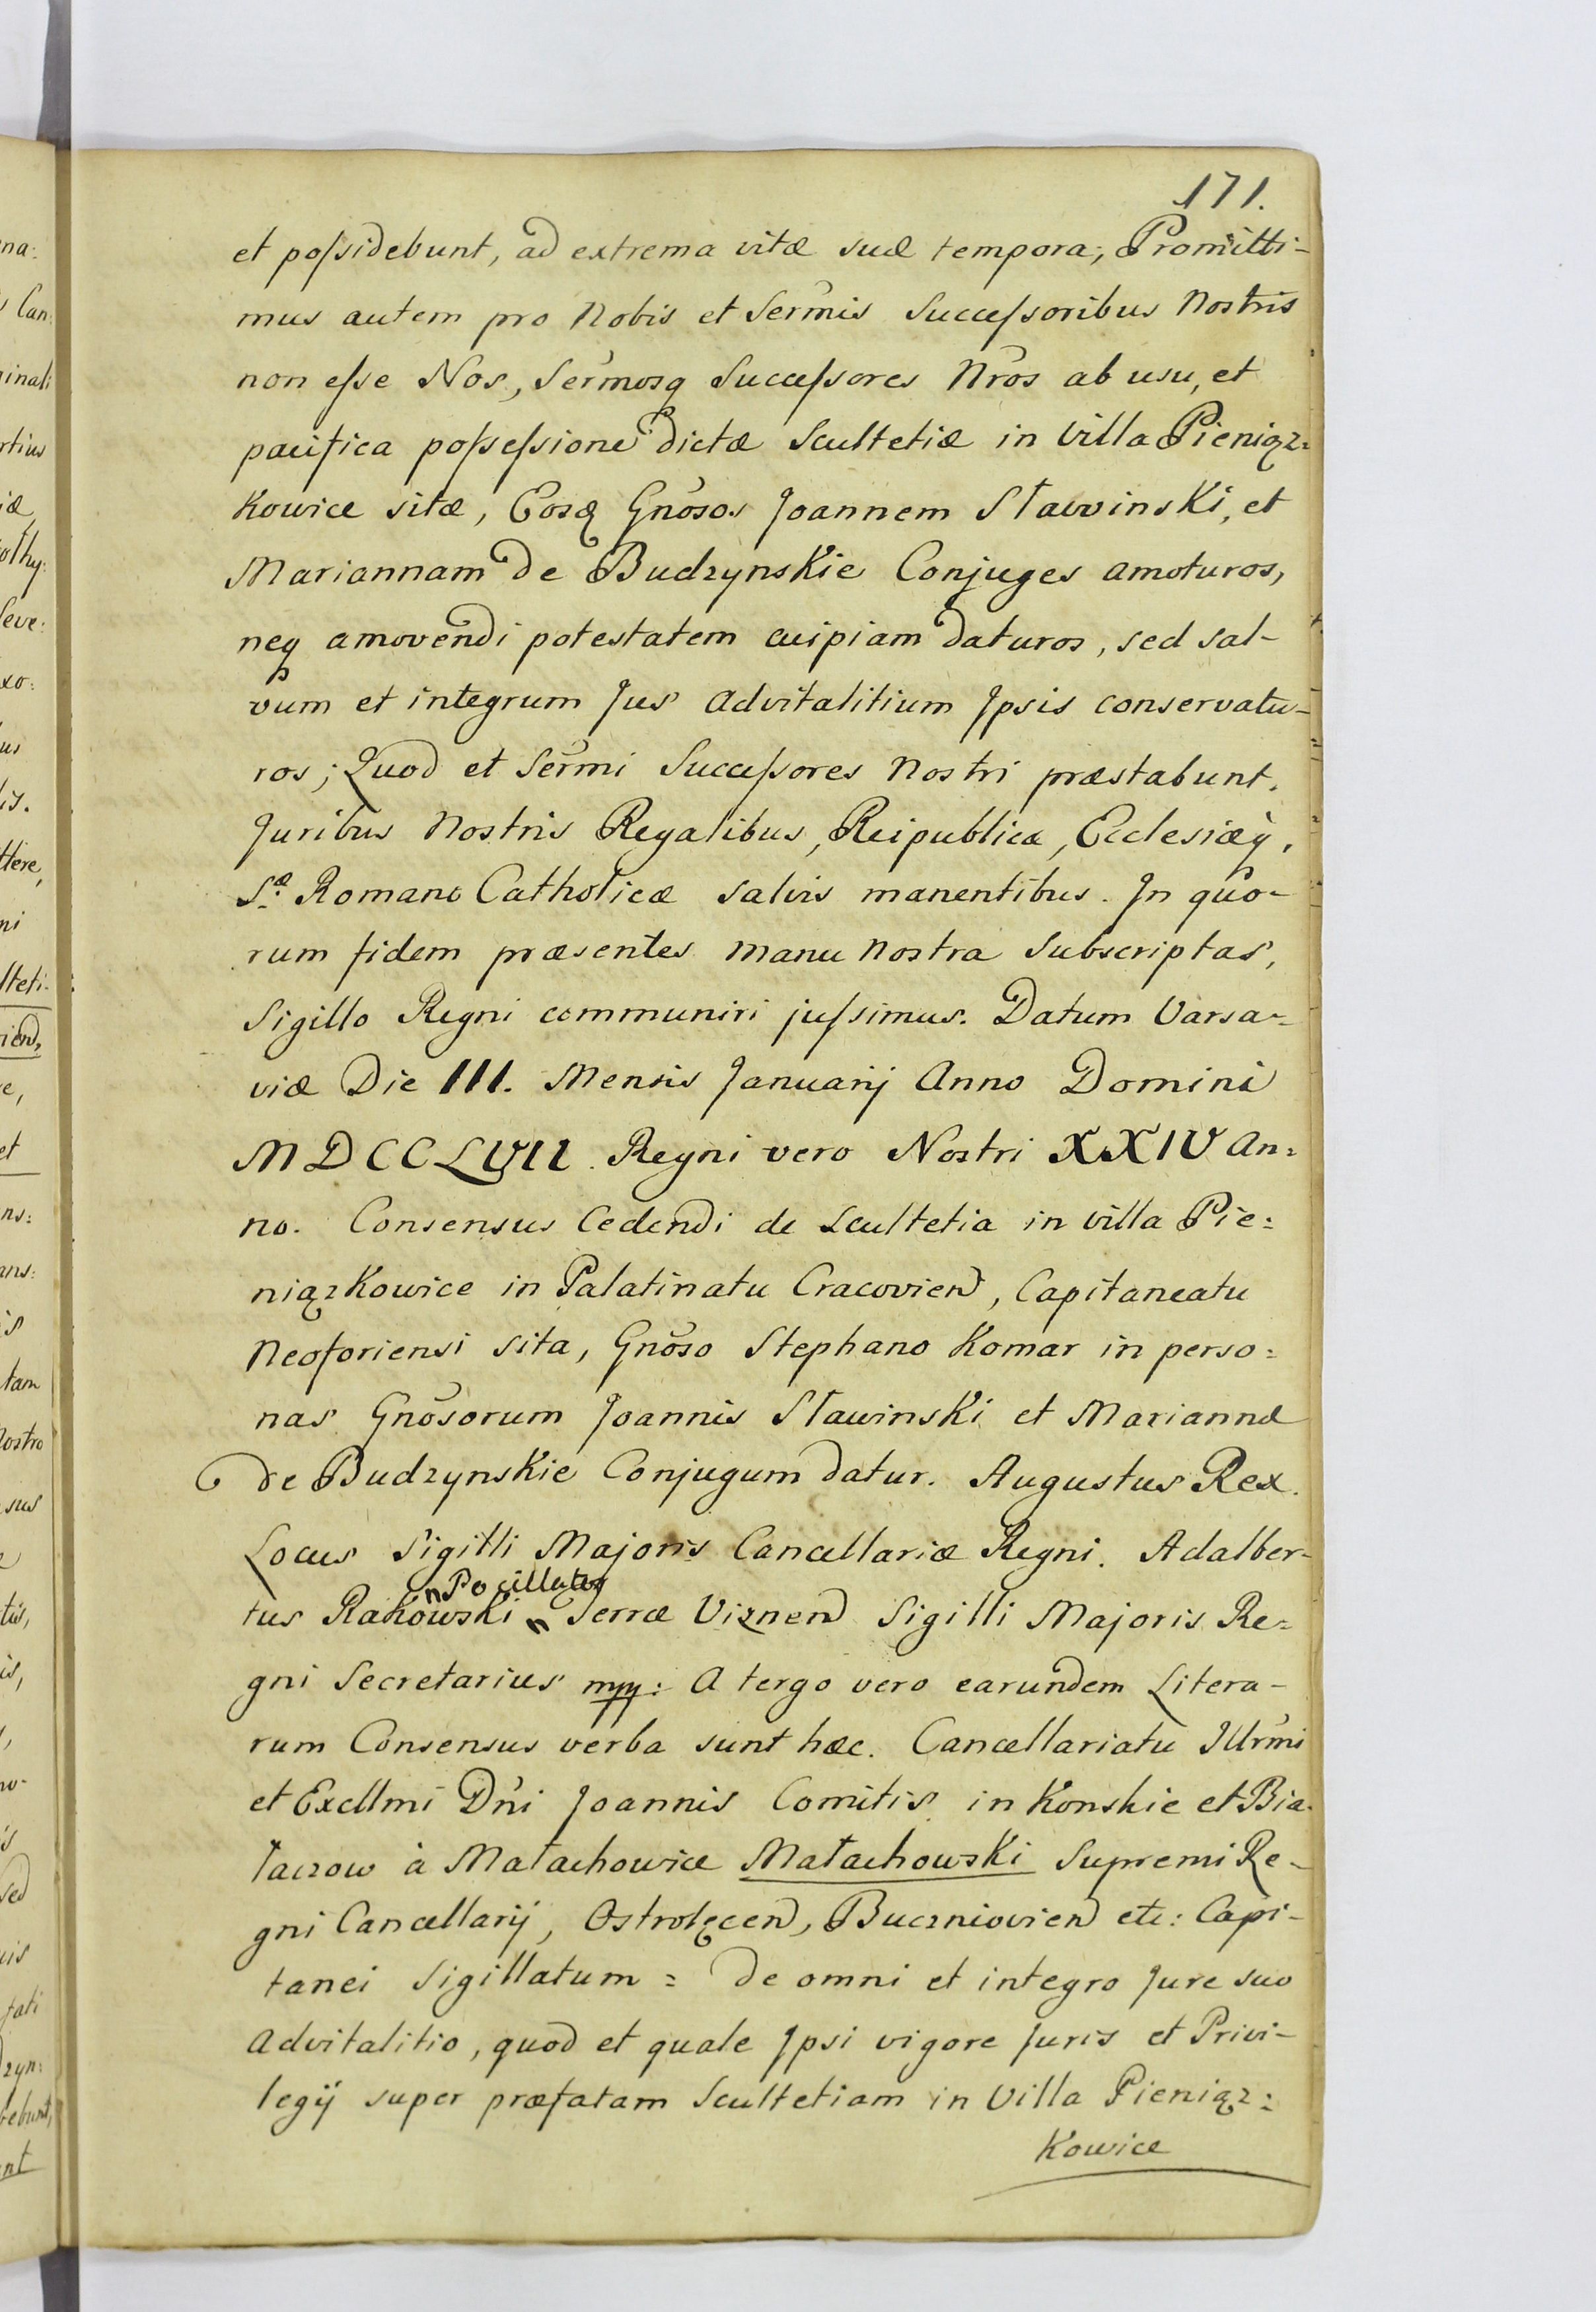 171.
et poſsidebunt, ad extrema vitæ suæ tempora; Promitti-
mus autem pro Nobis et Serm̃is Succeſsoribus Nostris
non eſse Nos, Serm̃osq Succeſsores Nr̃os ab usu, et
pacifica poſseſsione dictæ Scultetiæ in Villa Pieniąz=
Kowice sitæ, Eosq Gnõsos Joannem Sławinski, et
Mariannam de Budzynskie Conjuges amoturos,
neq amovendi potestatem cuipiam daturos, sed sal-
vum et integrum Jus Advitalitium Ipsis conservatu-
ros; Quod et Serm̃i Succeſsores Nostri præstabunt.
Juribus Nostris Regalibus, Reipublicæ, Ecclesiæq,
S.æ Romano Catholicæ salvis manentibus. In quo-
rum fidem præsentes manu Nostra Subscriptas,
Sigillo Regni communiri juſsimus. Datum Varsa-
viæ Die III. Mensis Januarij Anno Domini
MDCCLVII. Regni vero Nostri XXIV An=
no. Consensus Cedendi de Scultetia in villa Pie=
niązKowice in Palatinatu Cracovien, Capitaneatu
Neoforiensi sita, Gnõso Stephano Komar in perso=
nas Gnõsorum Joannis Sławinski et Mariannæ
de Budzynskie Conjugum datur. Augustus Rex.
Locus Sigilli Majoris Cancellariæ Regni. Adalber-
Pocillator
tus Rakowski Terræ Viznen Sigilli Majoris Re=
gni Secretarius mpp: A tergo vero earundem Litera-
rum Consensus verba sunt hæc. Cancellariatu Illrm̃i
et Excllmi Dñi Joannis Comitis in Konskie et Bia-
łaczow à Małachowice Małachowski Supremi Re-
gni Cancellarij, Ostrołęcen, Buczniovien etc: Capi-
tanei Sigillatum = de omni et integro Jure suo
Advitalitio, quod et quale Ipsi vigore Juris et Privi-
legij super præfatam Scultetiam in Villa Pieniąz=
Kowice